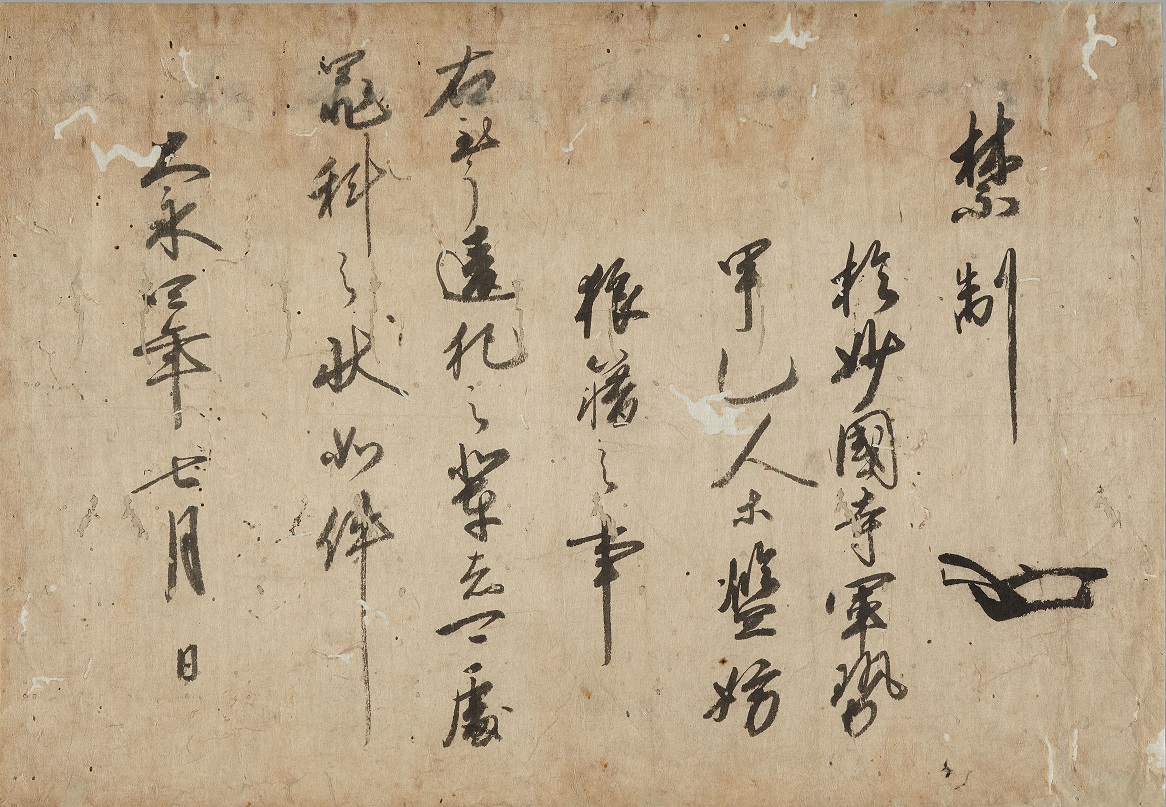 禁制
於妙國寺軍勢
甲乙人等濫妨
狼藉之事
右至于違犯之輩者可處
罪科之状如件
大永四年七月 日